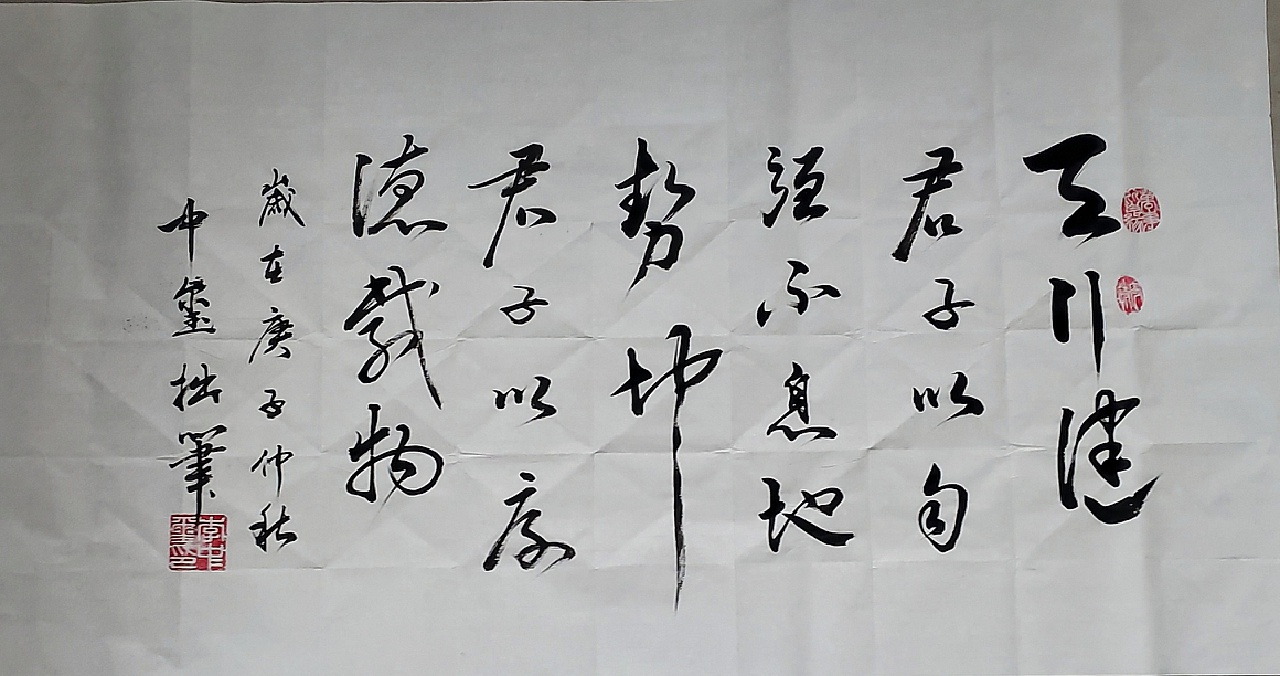 天行健
君子以自
强不息地
势坤
君子以厚
德载物
歲在庚子仲秋
中玺拙筆